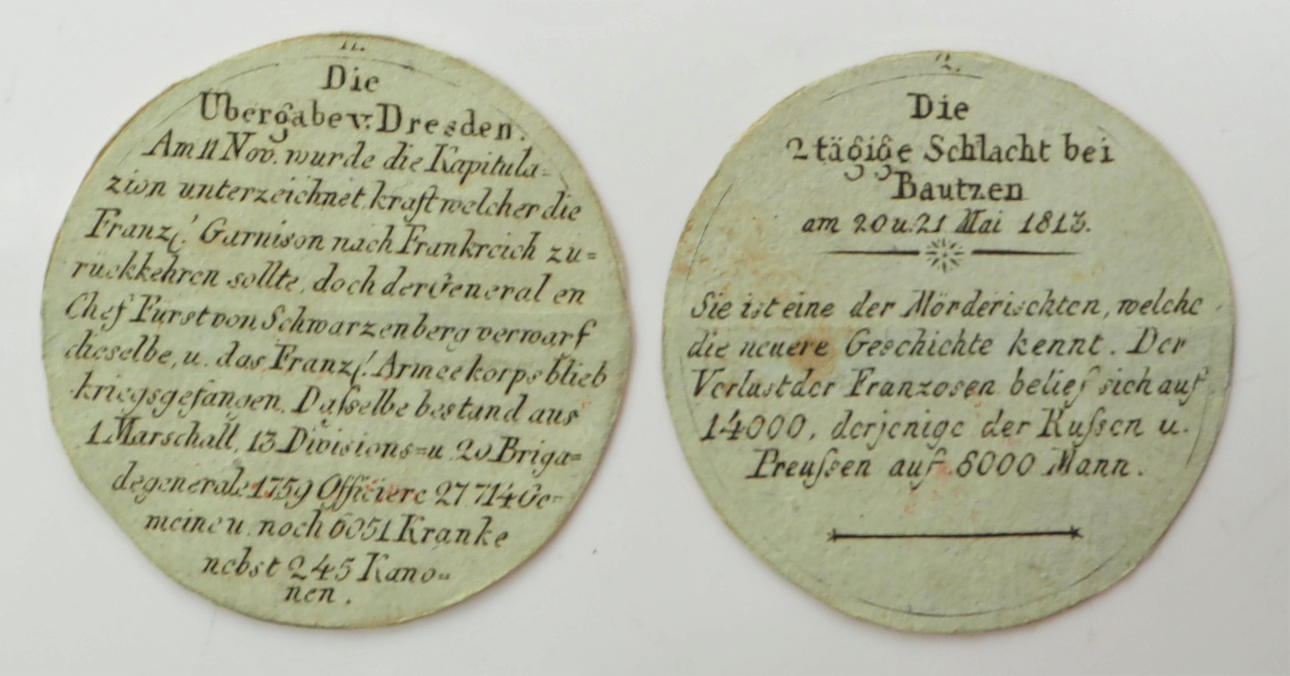 11.
Die
Übergabe v. Dresden.
Am 11 Nov. wurde die Kapitula=
zion unterzeichnet, kraft welcher die
Franzſ. Garnison nach Frankreich zu=
rückkehren sollte, doch der General en
Chef Fürst von Schwarzenberg verwarf
dieselbe, u. das Franzſ. Armeekorps blieb
kriegsgefangen. Daſselbe bestand aus
1 Marschall, 13 Divisions= u. 20 Briga=
degenerale 1759 Officiere 27714 Ge=
meine u. noch 6051 Kranke
nebst 245 Kano=
nen.
2.
Die
2 tägige Schlacht bei
Bautzen
am 20 u. 21 Mai 1813.
Sie ist eine der Mörderischten, welche
die neuere Geschichte kennt. Der
Verlust der Franzosen belief sich auf
14000, derjenige der Ruſsen u.
Preuſsen auf 8000 Mann.